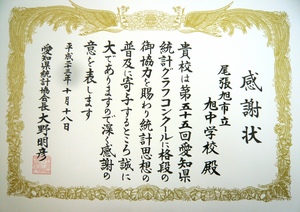 感謝状
尾張旭市立
旭中学校 殿
貴校は第五十五回愛知県
統計グラフコンクールに格段の
御協力を賜わり統計思想の
普及に寄与するところ誠に
大でありますので深く感謝の
意を表します
平成十五年十月十八日
愛知県統計協会長 大野明彦